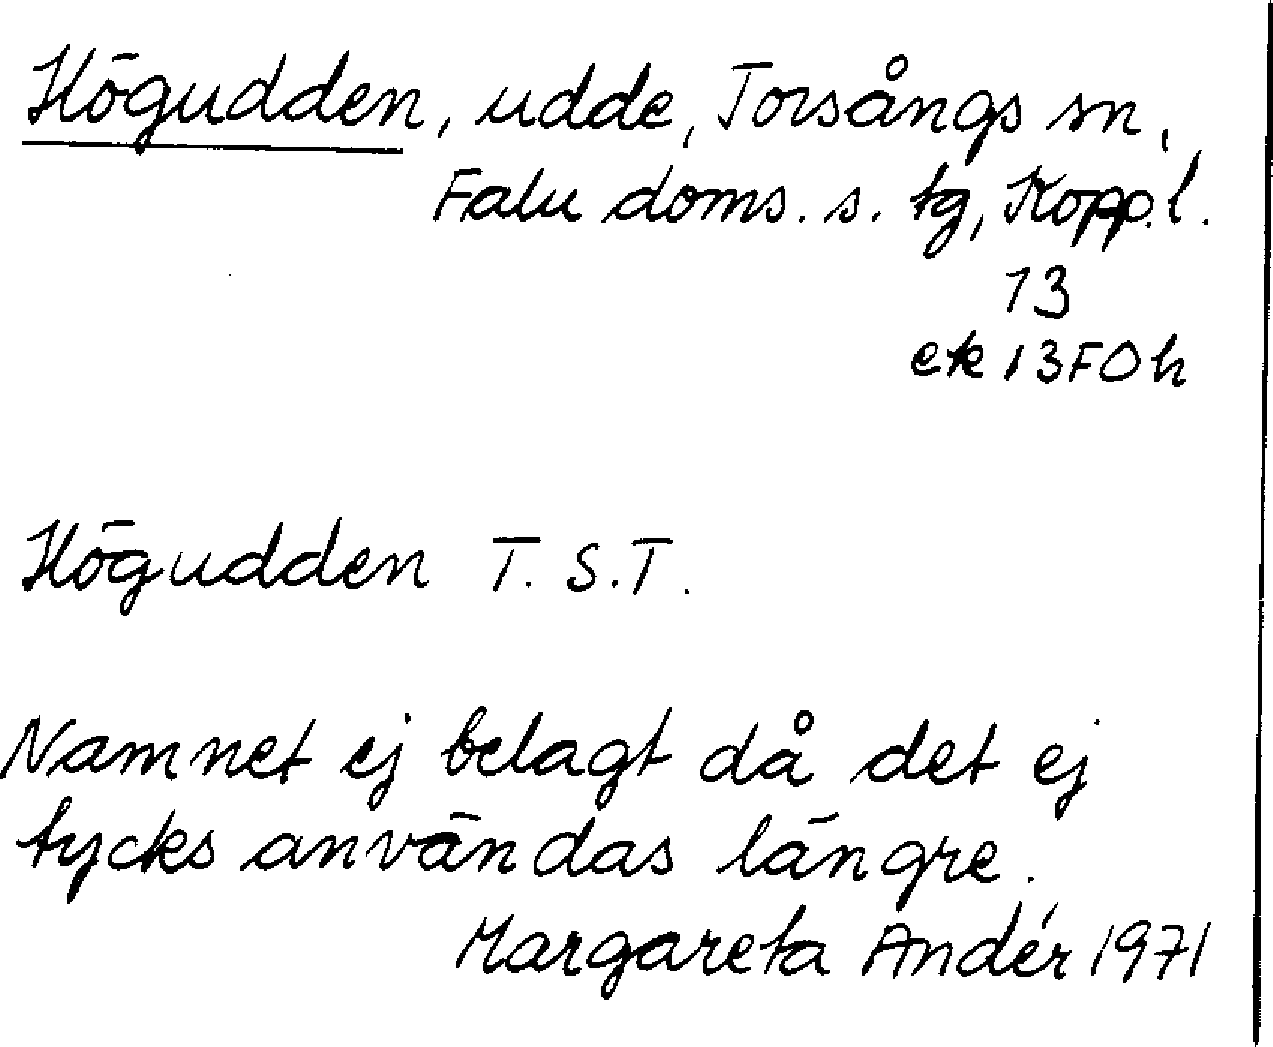 Högudden, udde, Torsångs sn,
Falu doms. s. tg, Kopp.l.
13
ek 13F0h
Högudden T. S.T.
Namnet ej belagt då det ej
tycks användas längre.
Margareta Andér 1971